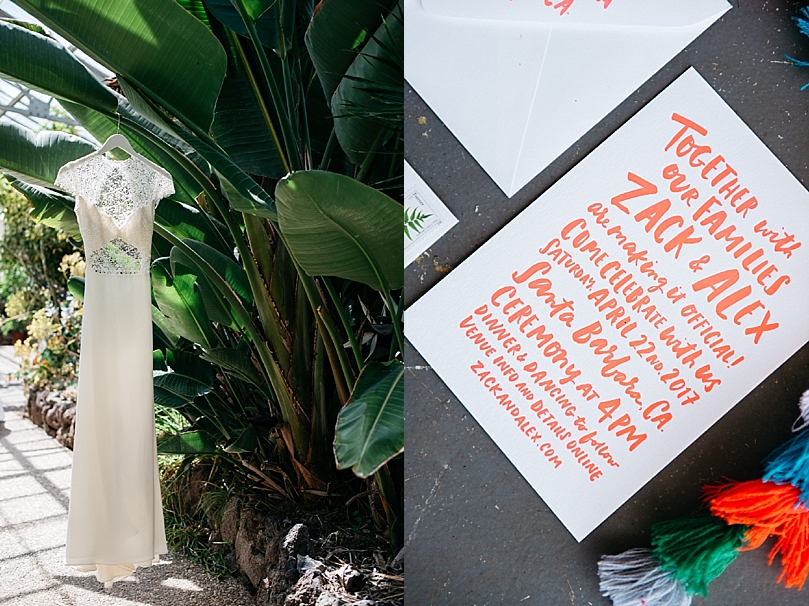 CA.
TOGETHER with
OUR FAMILIES
ZACK & ALEX
are making it official!
COME CELEBRATE with us
SATURDAY, APRIL 22ND, 2017
Santa Barbara, CA.
CEREMONY AT 4PM
DINNER & DANCING to follow
VENUE INFO AND DETAILS ONLINE
ZACKANDALEX.COM